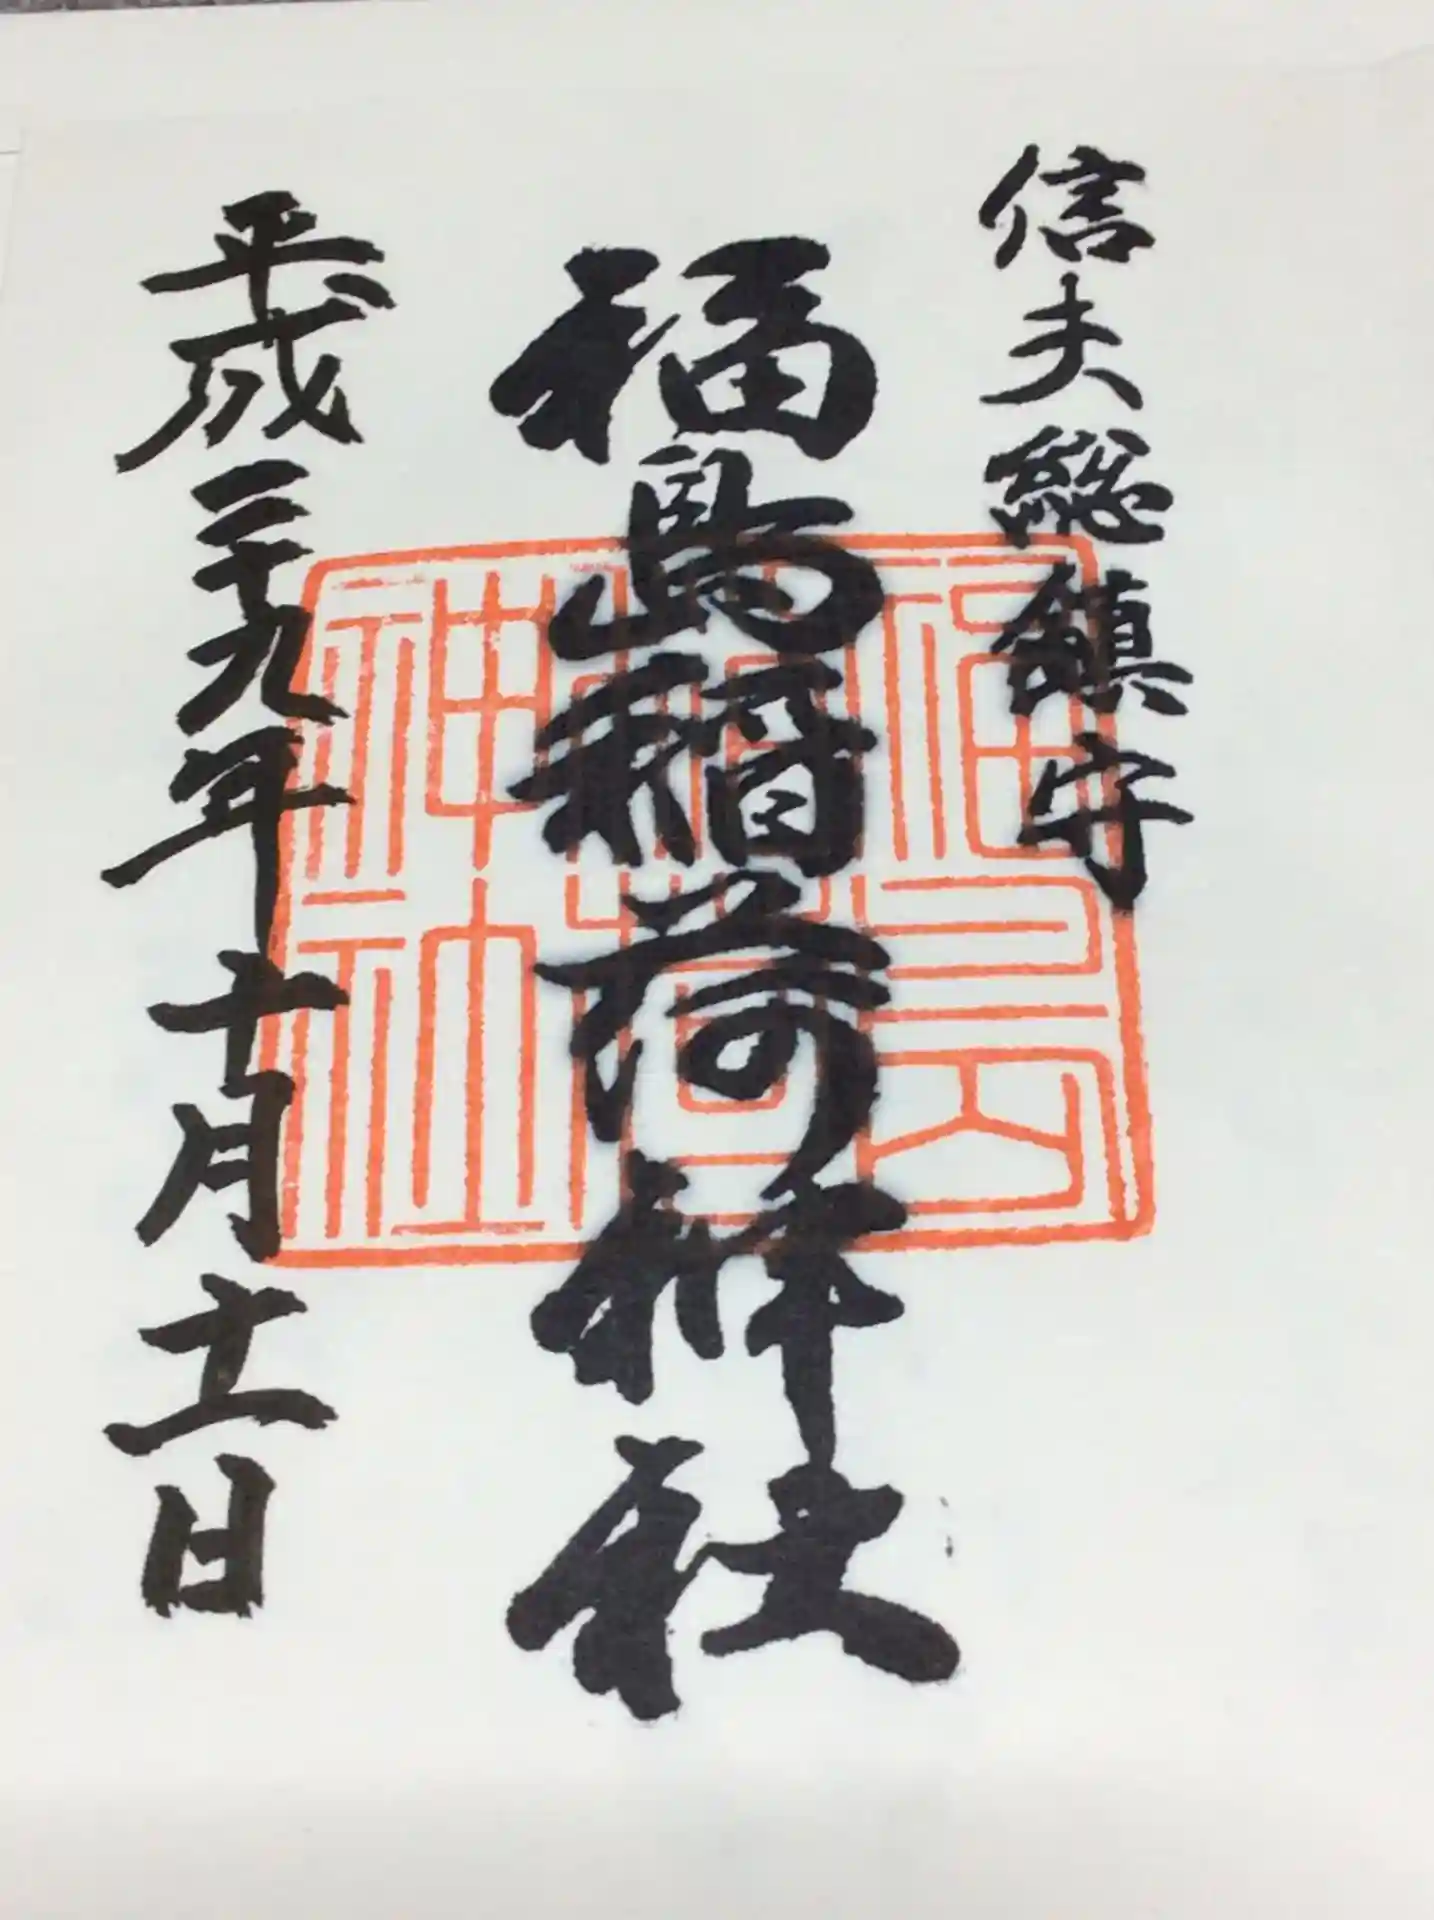 信夫総鎮守
福島稲荷神社
平成二十九年十月十一日
福島稲荷神社